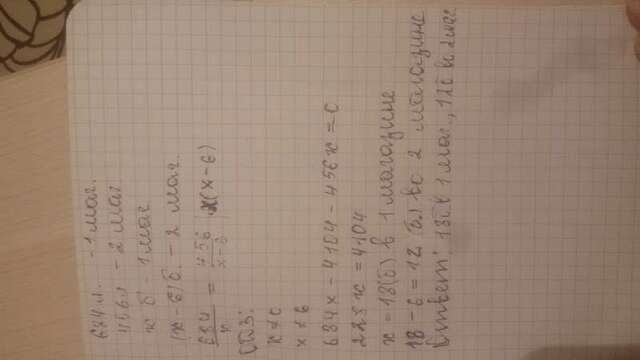 684 л. - 1 маг.
456 л - 2 маг
х б - 1 маг
(х - 6) б. - 2 маг.
684/х = 456/х-6 | · х(х - 6)
ОДЗ:
х ≠ 0
х ≠ 6
684х - 4104 - 456х = 0
228х = 4104
х = 18(б) в 1 магазине
18 - 6 = 12 (б.) во 2 магазине
Ответ: 18б в 1 маг., 12б во 2 маг